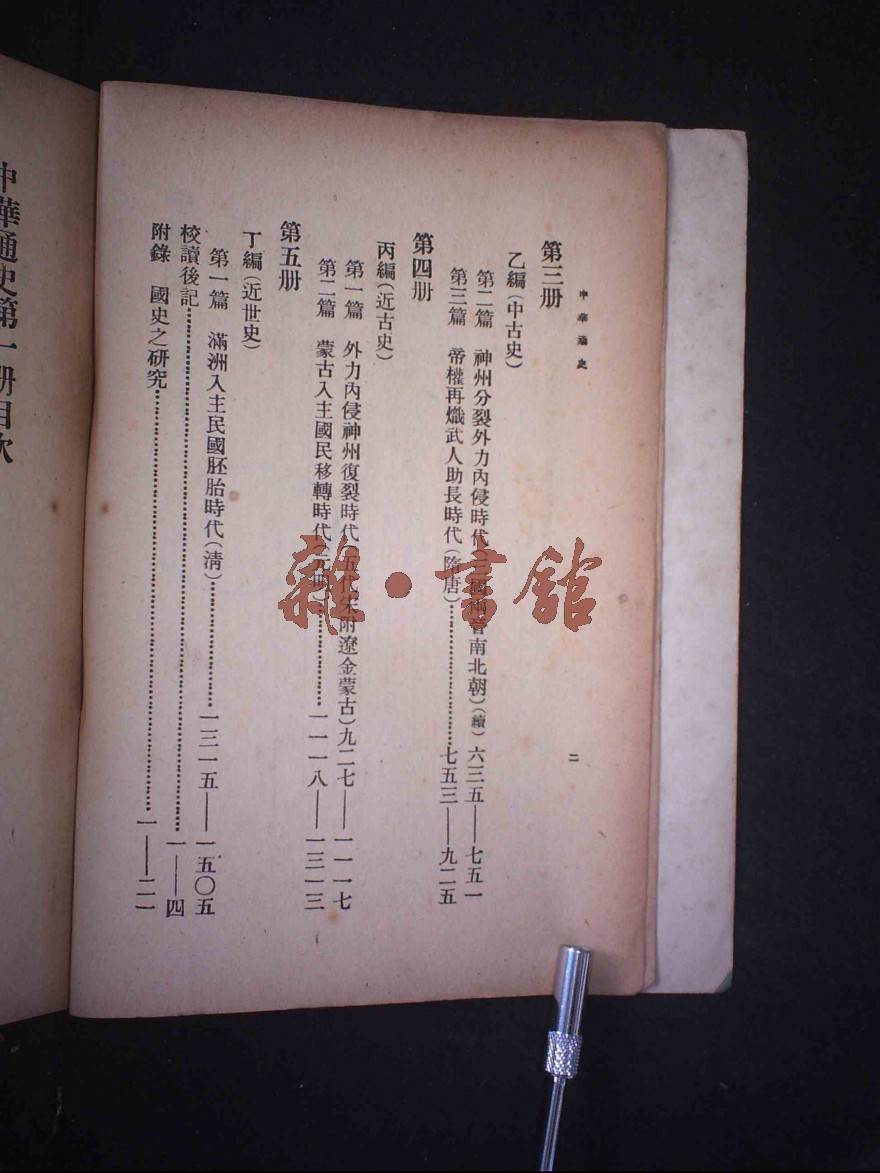 中華通史
二
第三册
乙編(中古史)
第二篇 神州分裂外力內侵時代(三國兩晉南北朝)(續)六三五——七五一
第三篇 帝權再熾武人助長時代(隋唐)…………七五三——九二五
第四册
丙編(近古史)
第一篇 外力內侵神州復裂時代(五代宋附遼金蒙古)九二七——一一一七
第二篇 蒙古入主國民移轉時代(元明)…………一一一八——一三一三
第五册
丁編(近世史)
第一篇 滿洲入主民國胚胎時代(清)…………一三一五——一五〇五
校讀後記…………一——四
附錄 國史之研究…………一——二一
中華通史第一册目次
雜·書館